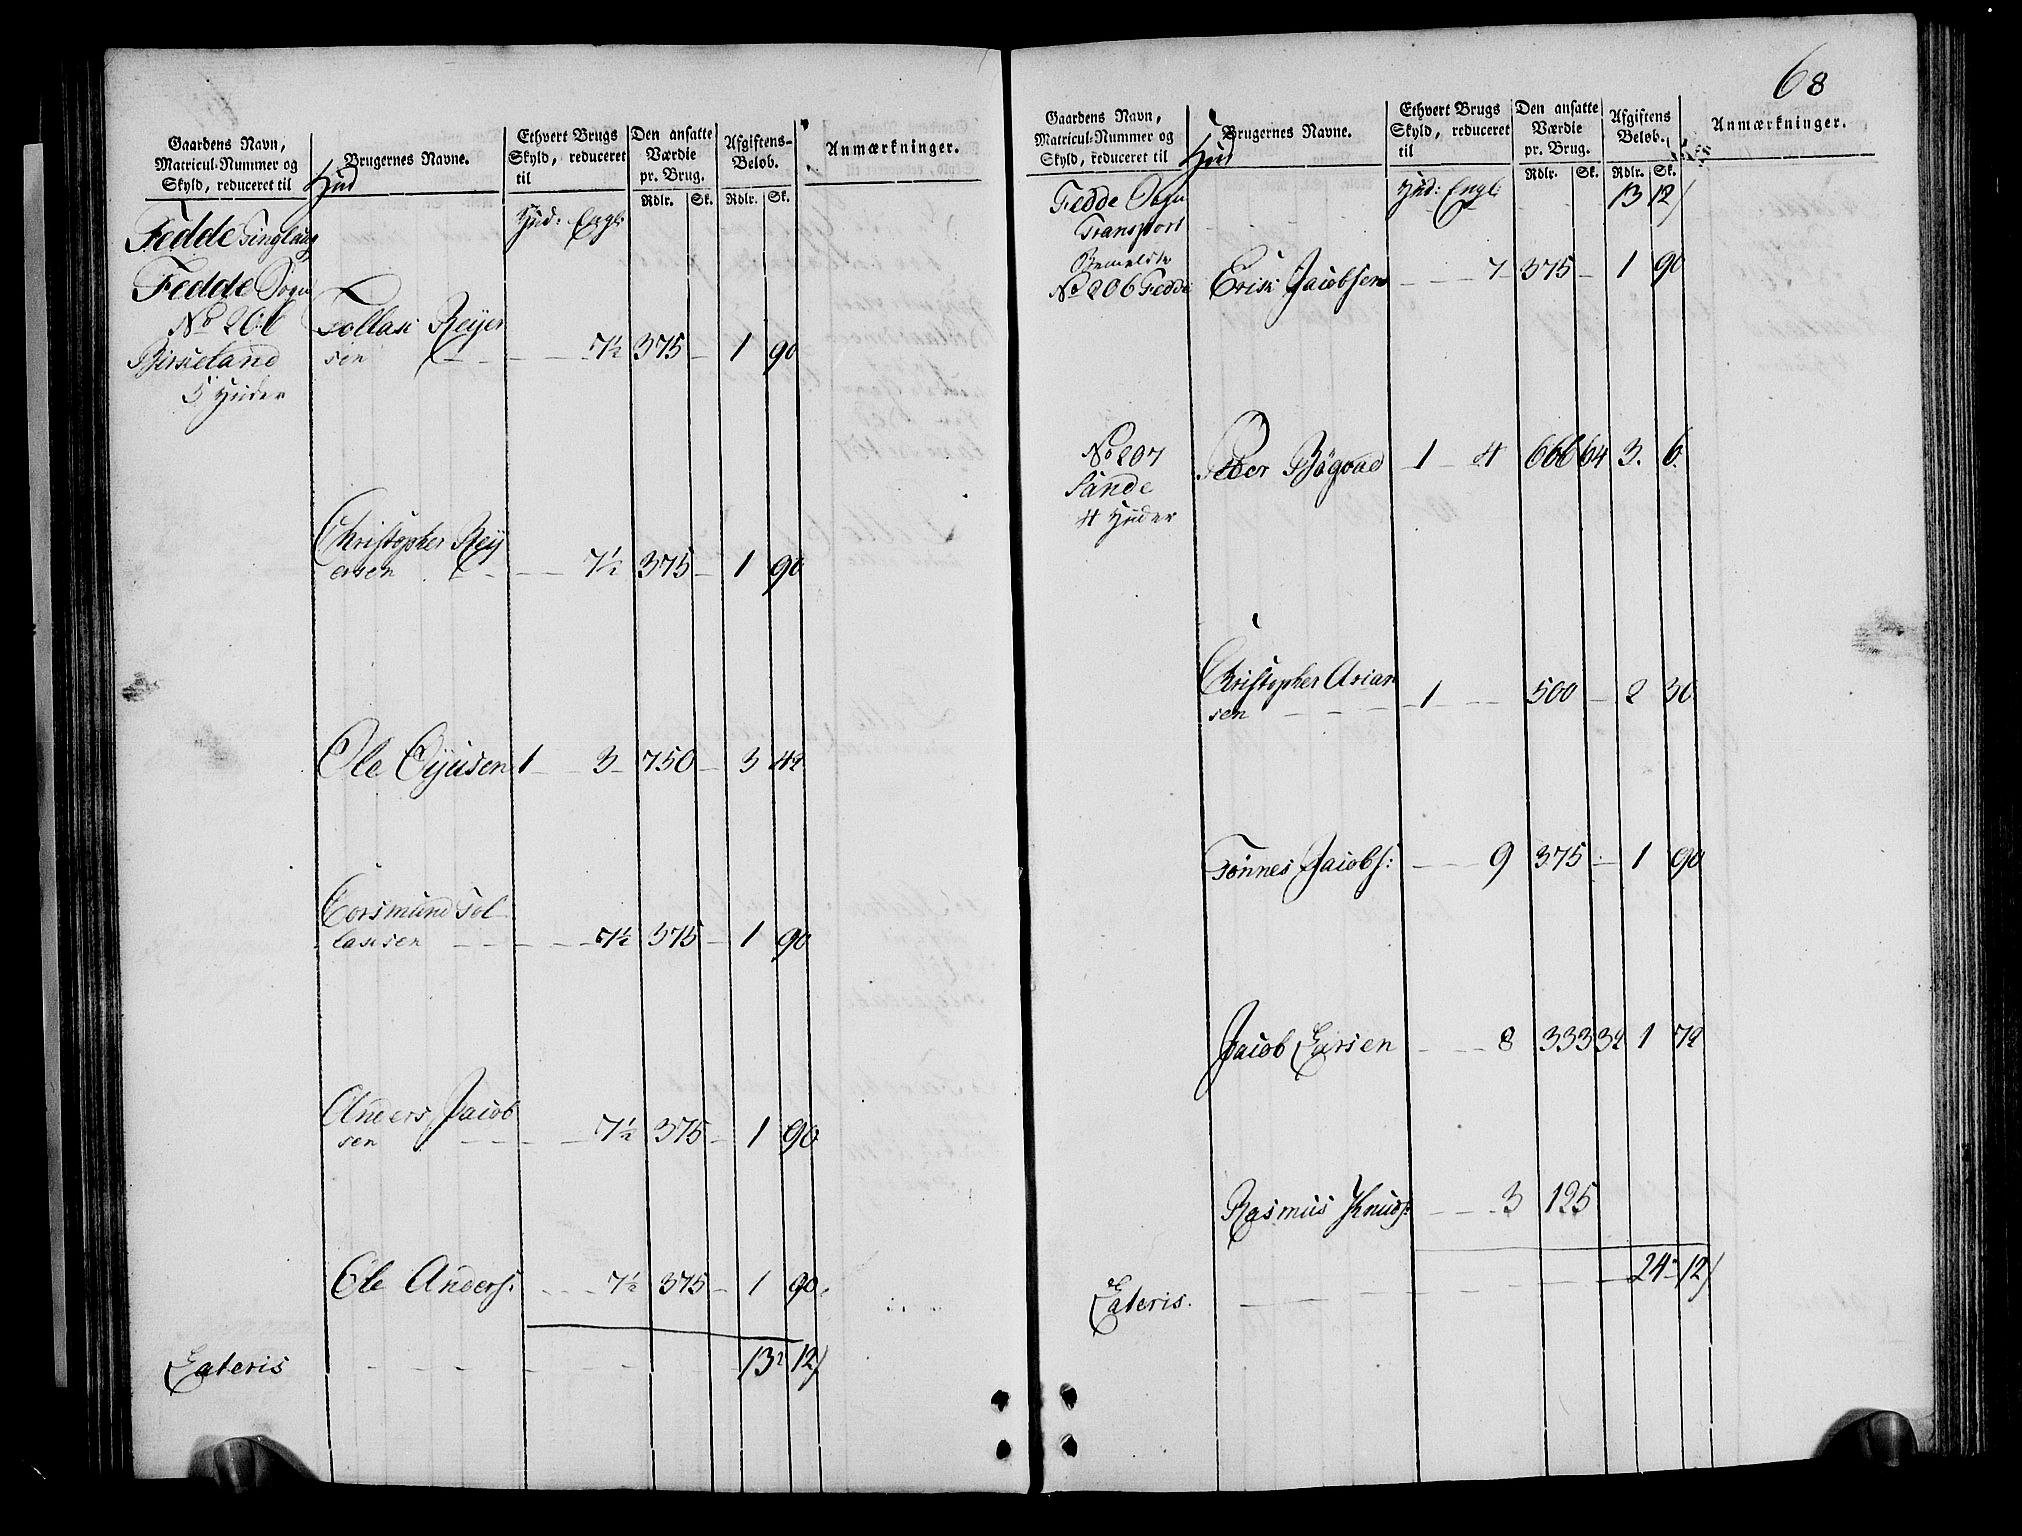 Gaardens Navn,
Matricul-Nummer og
Skyld, reduceret til
Hud
Brugernes Navne.
Ethvert Brugs
Skyld, reduceret
til
Den ansatte
Værdie
pr. Brug.
Rdlr. Sk.
Afgiftens-
Beløb.
Rdlr. Sk.
Anmærkninger.
Fedde Tinglaug
Hud: Engl:
Fedde Sogn
No 206 Tollack Reijer
Birkeland sen 7½ 375 - 1 90
5 Huder
Christopher Reij
ersen 7½ 375 - 1 90
Ole Ejusen 1 - 3 - 750 - 3 42
Torsmund Tol
lacksen 7½ 375 - 1 90
Anders Jacob
sen 7½ 375 - 1 90
Ole Anders: 7½ 375 - 1 90
Lateris 13 12
68
Gaardens Navn,
Matricul-Nummer og
Skyld, reduceret til
Hud
Brugernes Navne.
Ethvert Brugs
Skyld, reduceret
til
Den ansatte
Værdie
pr. Brug.
Rdlr. Sk.
Afgiftens
Beløb.
Rdlr. Sk.
Anmærkninger.
Fedde Sogn Hud: Engl: 13 12
Transport
No 206 Fedde Erik Jacobsen 7 375 - 1 90
No 207 Peder Bøgvad 1 - 4 666 64 3. 6.
Sande
4 Huder
Christopher Arian
sen 1 500 - 2 30
Tønnes Jacobs: 9 375 - 1 90
Jacob Larsen 8 333 32 1 72
Rasmus Knuds: 3 125
Lateris. 24 12